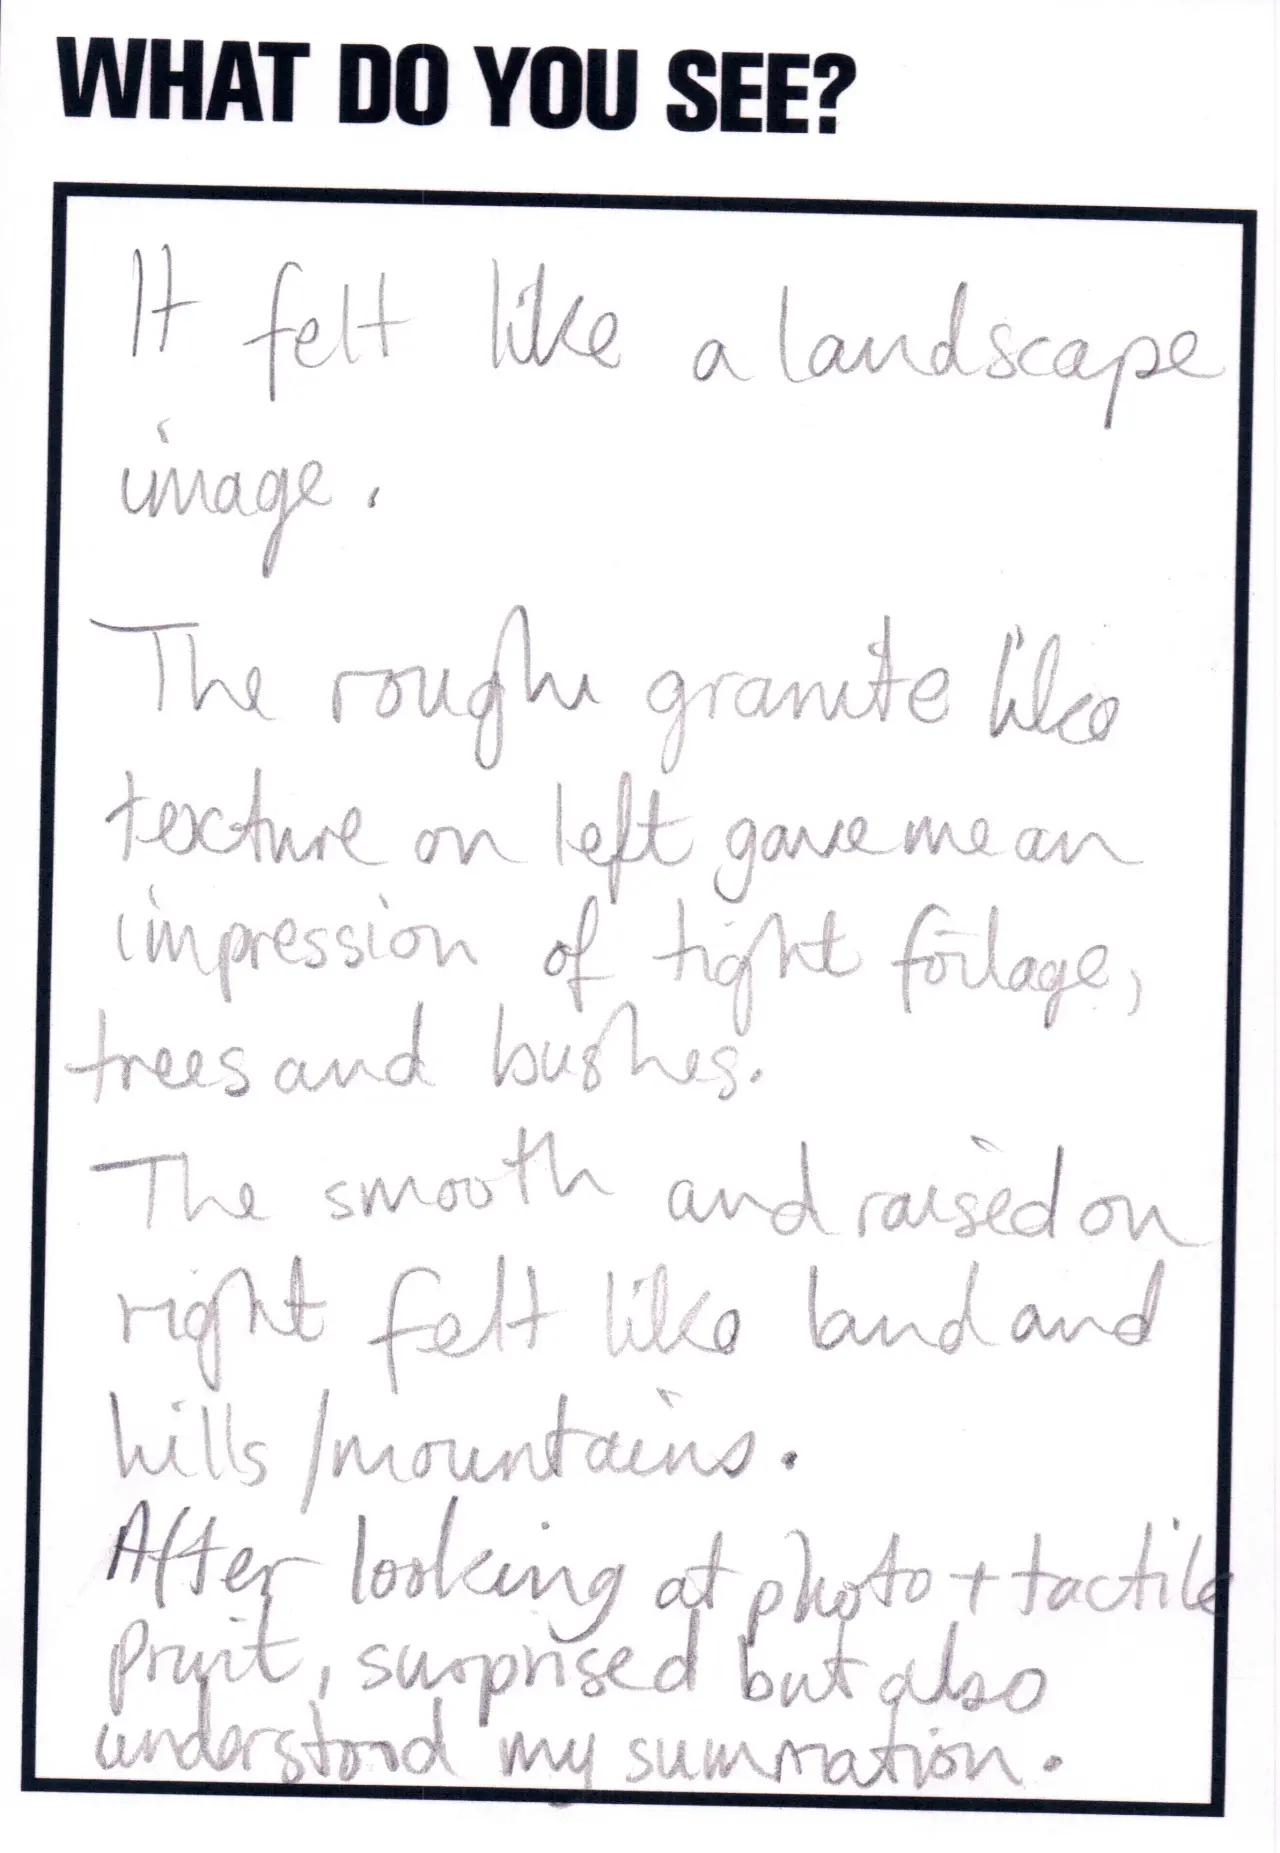 WHAT DO YOU SEE?
It felt like a landscape
image.
The rough granite like
texture on left gave me an
impression of tight foilage,
trees and bushes.
The smooth and raised on
right felt like land and
hills/mountains.
After looking at photo + tactile
print, surprised but also
understood my summation.